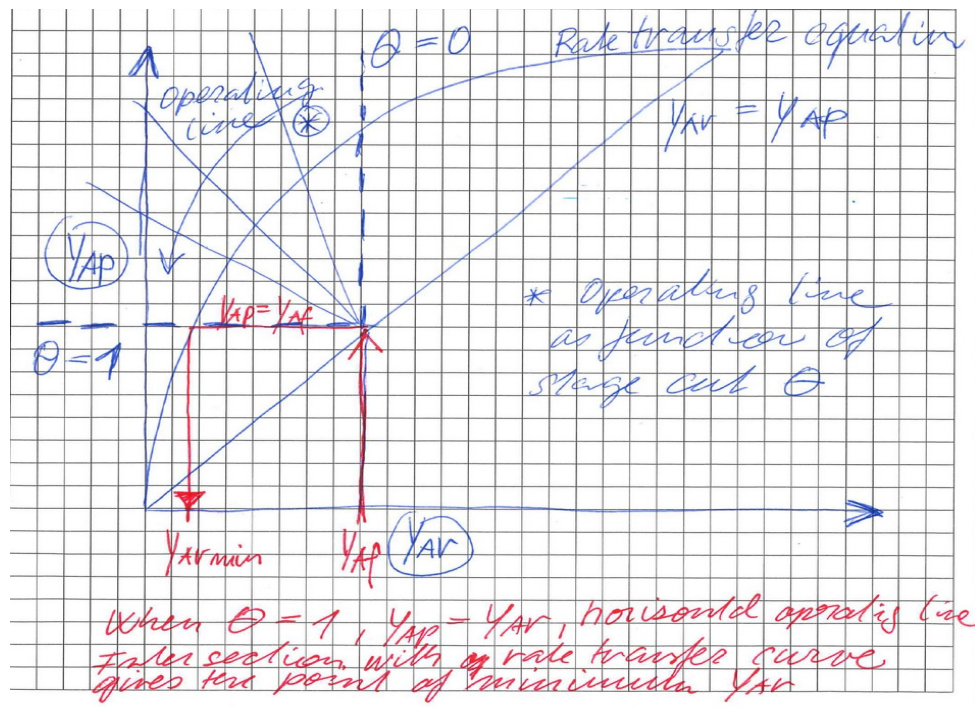 θ = 0
Rate transfer equation
operating
line *
yAr = yAp
yAp
yAp = yAf
* Operating line
as function of
stage cut θ
θ = 1
yAr min
yAf
yAr
When θ = 1, yAp = yAr, horisontal operatig line
Intersection with rate transfer curve
gives the point of minimum yAr